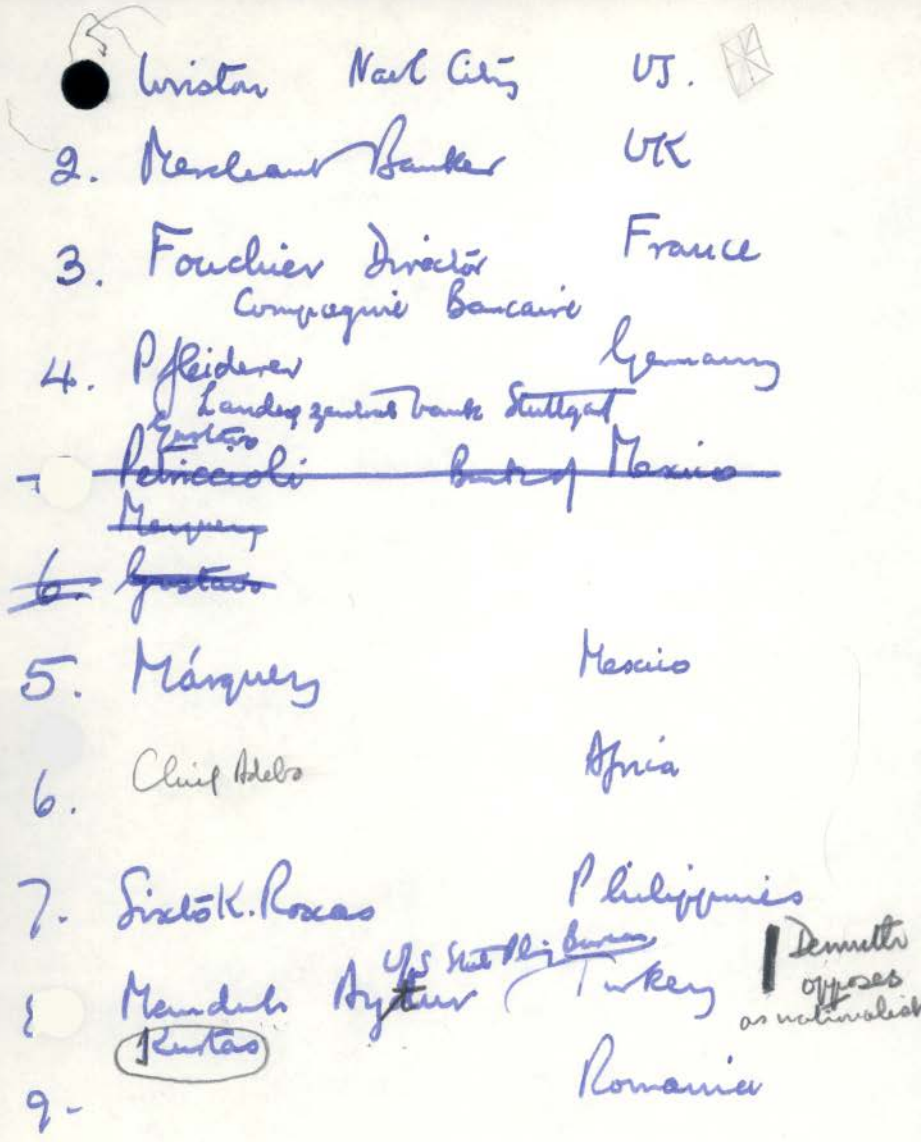 Wriston Natl City US.
2. Merchant Banker UK
3. Fouchier Director France
Compagnie Bancaire
4. Pfleiderer Germany
Landeszentralbank Stuttgart
Gustavo
Petriccioli Bank of Mexico
Marquez
6. Gustavo
5. Márquez Mexico
6. Chief Adebo Africa
7. Sixto K. Roxas Philippines
U/S State Plg Bureau
Memduh Aytur Turkey
Demuth
opposes
as nationalist
Kurtas
9- Romania